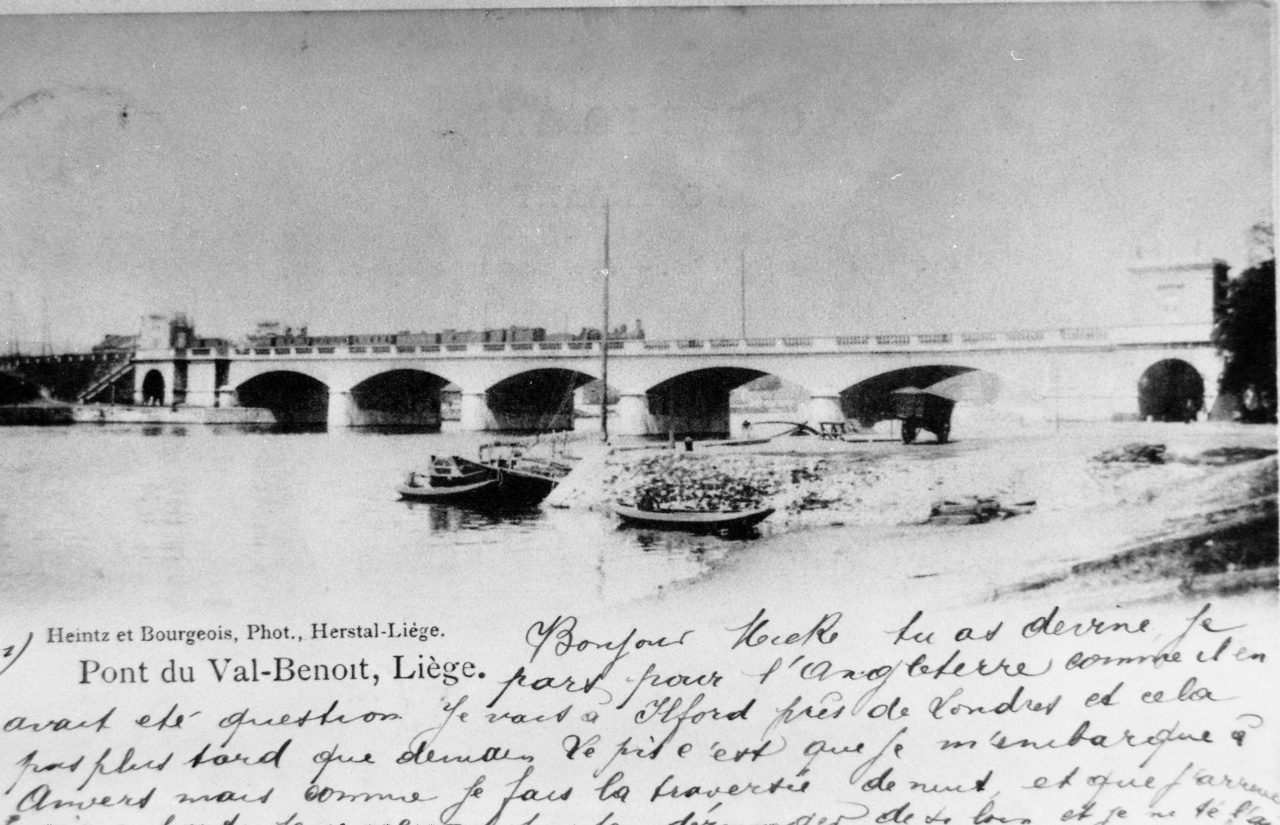 Heintz et Bourgeois, Phot., Herstal-Liége.
Pont du Val-Benoit, Liège.
Bonjour tu as deviné, je
pars pour l'Angleterre comme il en
avait eté question. Je vais à Ilford près de Londres et cela
pas plus tard que demain Le pis c'est que je m'embarque à
Anvers mais comme je fais la traversée de nuit, et que j'arrive
de si loin et je ne te l'ai